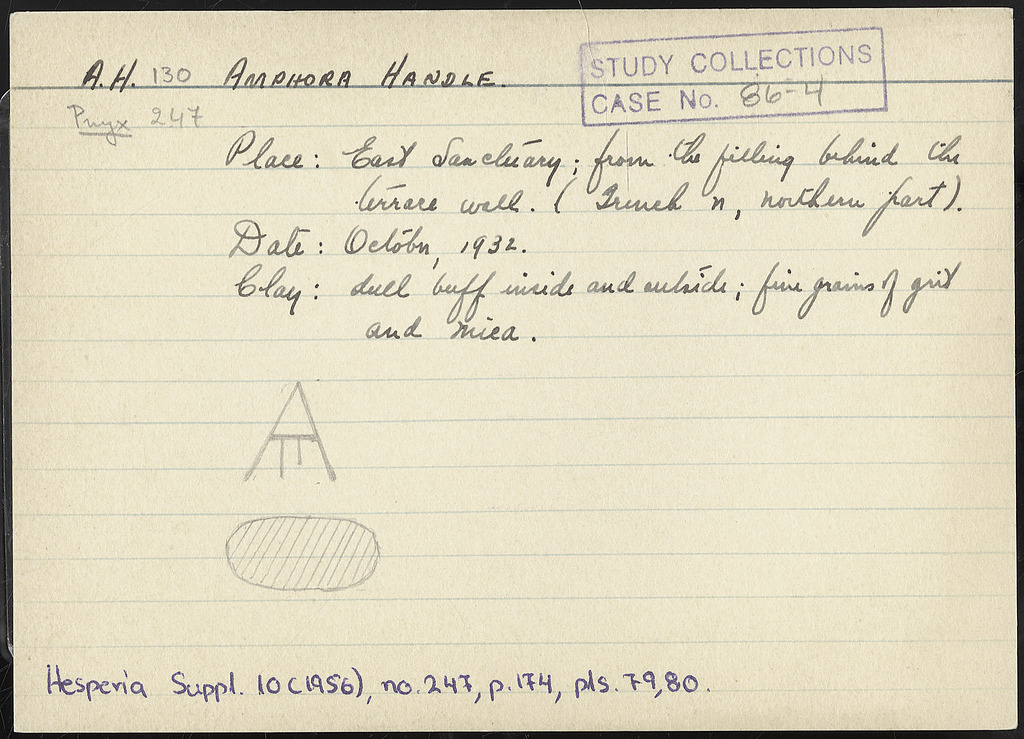 A.H. 130 AMPHORA HANDLE.
STUDY COLLECTIONS
CASE No. 86-4
Pnyx 247
Place: East Sanctuary; from the filling behind the
terrace wall. (Trench n, northern part).
Date: October, 1932.
Clay: dull buff inside and outside; fine grains of grit
and mica.
Hesperia Suppl. 10 (1956), no. 247, p. 174, pls. 79,80.